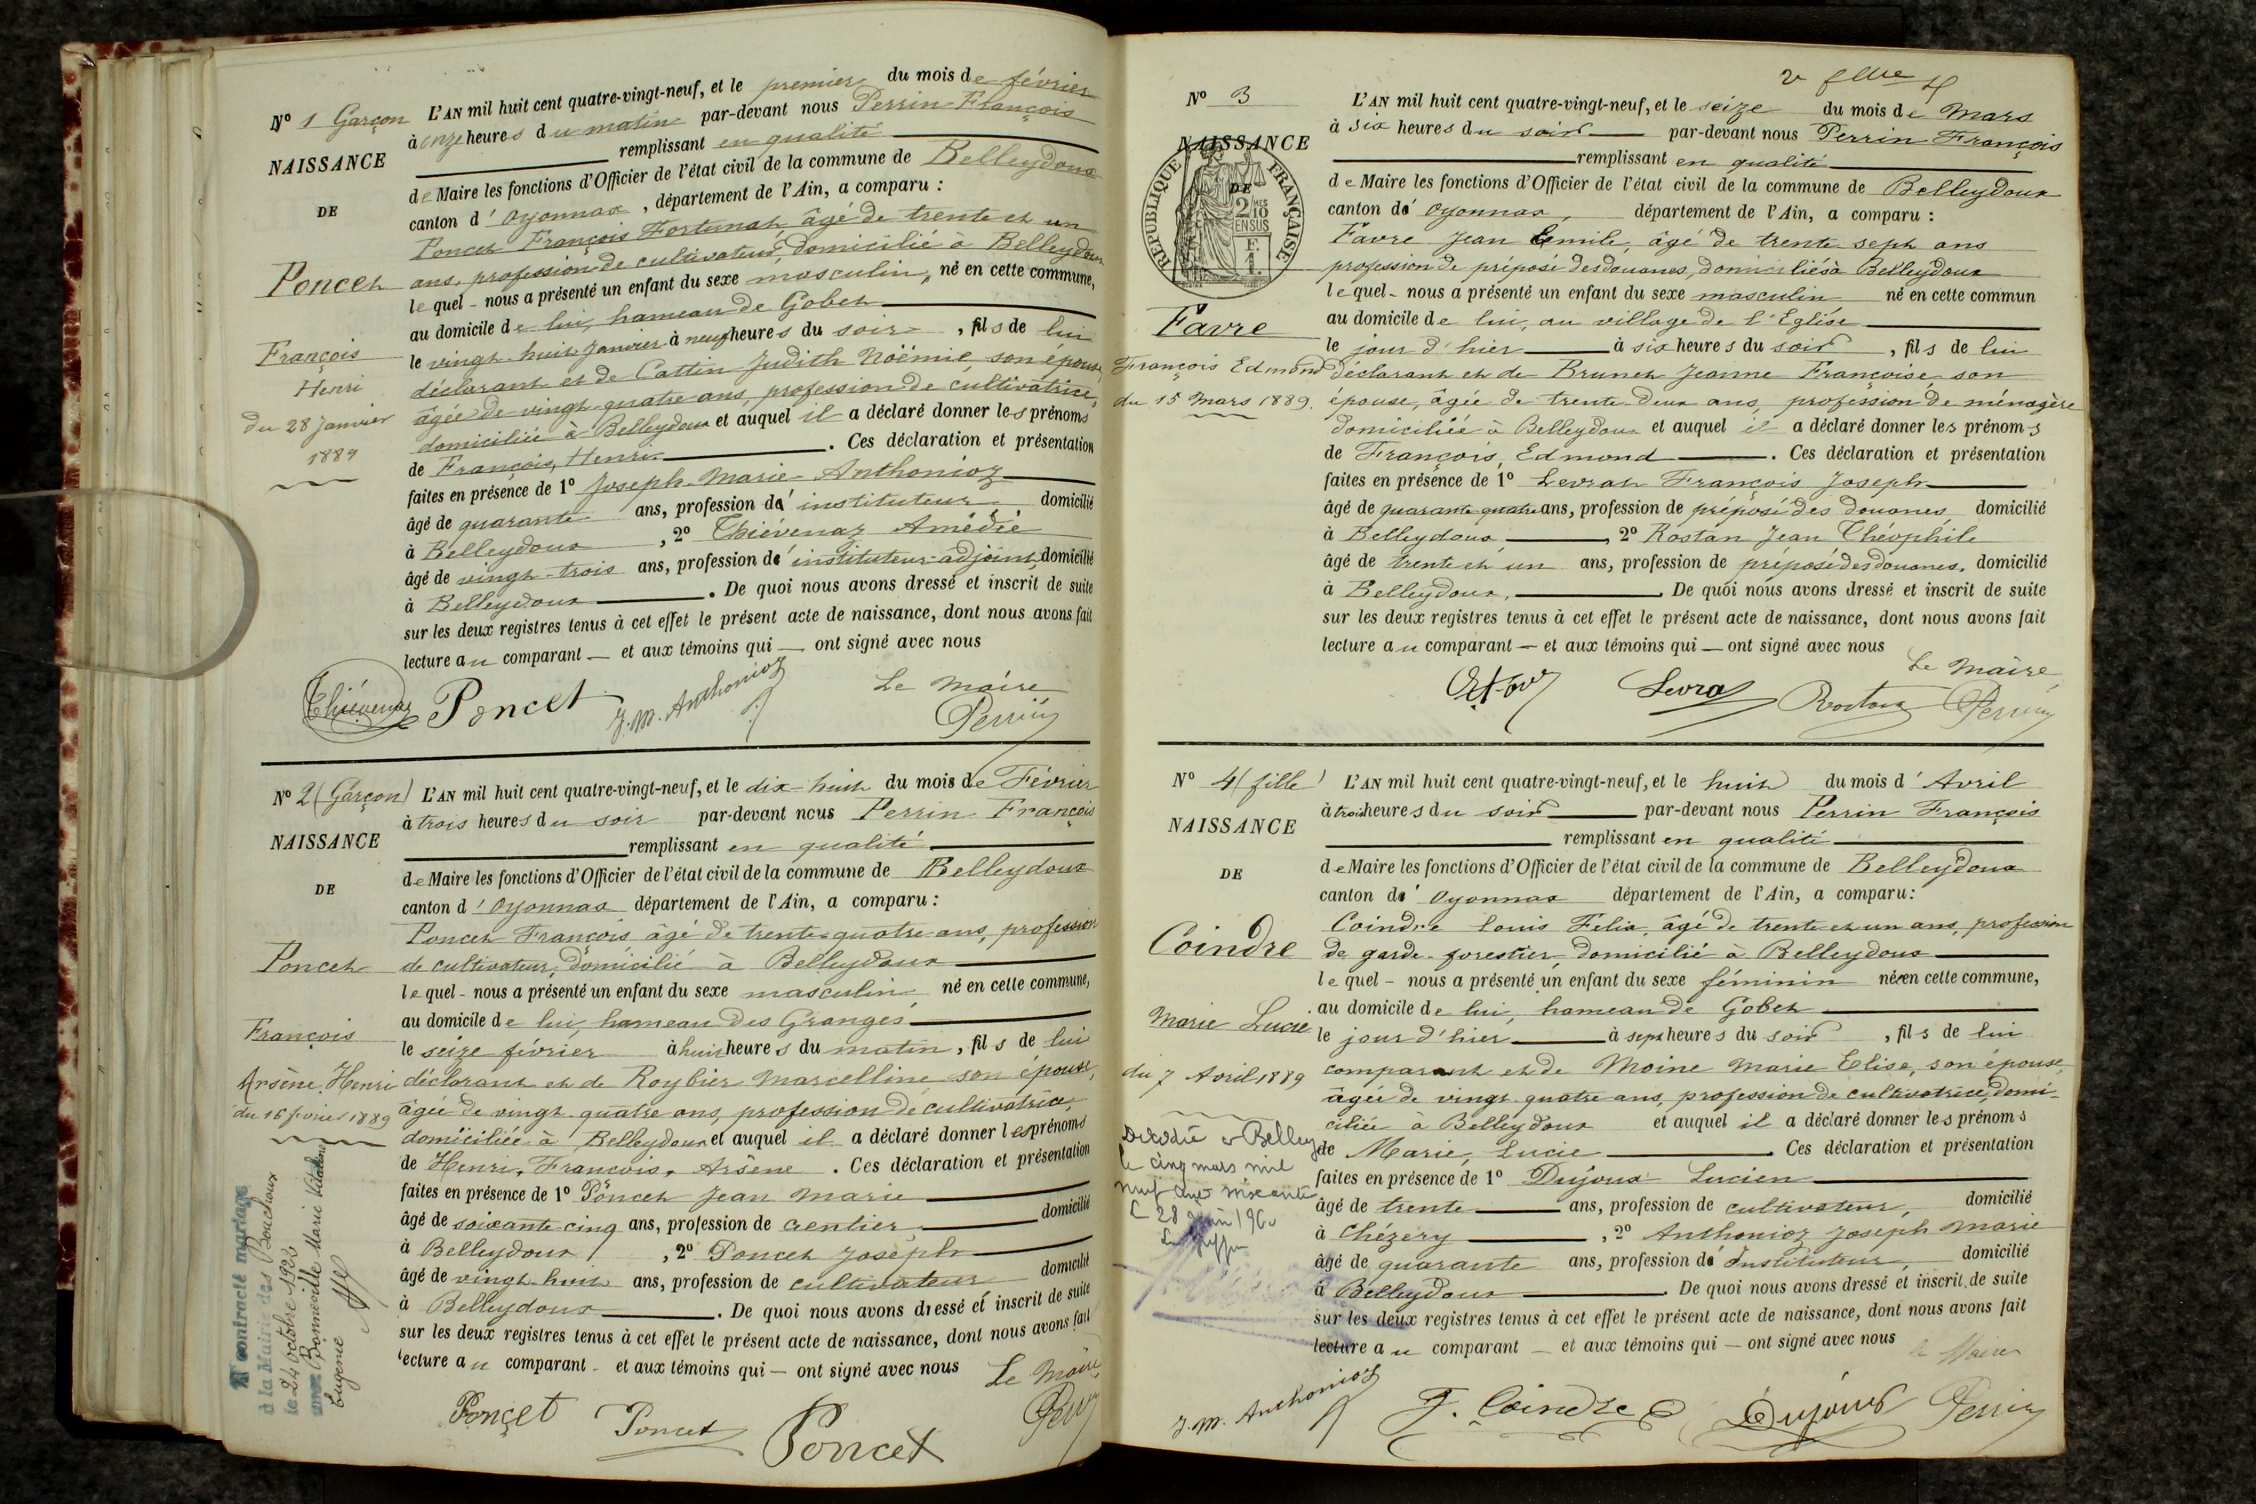 Nº 1 Garçon
NAISSANCE
DE
Poncet
François
Henri
du 28 Janvier
1889
L'AN mil huit cent quatre-vingt-neuf, et le premier du mois de février
à onze heures du matin par-devant nous Perrin François
remplissant en qualité
de Maire les fonctions d'Officier de l'état civil de la commune de Belleydoux
canton d'Oyonnax, département de l'Ain, a comparu :
Poncet François Fortunat, âgé de trente et un
ans, profession de cultivateur, domicilié à Belleydoux
lequel - nous a présenté un enfant du sexe masculin, né en cette commune,
au domicile de lui, hameau de Gobet
le vingt-huit Janvier à neuf heures du soir, fils de lui
déclarant et de Cattin Judith Noëmie, son épouse,
âgée de vingt-quatre ans, profession de cultivatrice,
domiciliée à Belleydoux et auquel il a déclaré donner les prénoms
de François, Henri. Ces déclaration et présentation
faites en présence de 1º Joseph-Marie Anthonioz
âgé de quarante ans, profession d'instituteur, domicilié
à Belleydoux, 2º Thiévenaz Amédée
âgé de vingt-trois ans, profession d'instituteur-adjoint, domicilié
à Belleydoux. De quoi nous avons dressé et inscrit de suite
sur les deux registres tenus à cet effet le présent acte de naissance, dont nous avons fait
lecture au comparant — et aux témoins qui — ont signé avec nous
Le Maire
Thiévenaz Poncet J.M. Anthonioz Perrin
Nº 2 (Garçon)
NAISSANCE
DE
Poncet
François
Arsène, Henri
du 16 février 1889
A contracté mariage
à la Mairie des Bouchoux
le 24 octobre 1922
avec Bonneville Marie
Eugenie
L'AN mil huit cent quatre-vingt-neuf, et le dix-huit du mois de Février
à trois heures du soir par-devant nous Perrin François
remplissant en qualité
de Maire les fonctions d'Officier de l'état civil de la commune de Belleydoux
canton d'Oyonnax département de l'Ain, a comparu :
Poncet François âgé de trente-quatre ans, profession
de cultivateur, domicilié à Belleydoux
lequel - nous a présenté un enfant du sexe masculin né en cette commune,
au domicile de lui, hameau des Granges
le seize février à huit heures du matin, fils de lui
déclarant et de Roybier Marcelline son épouse,
âgée de vingt-quatre ans, profession de cultivatrice,
domiciliée à Belleydoux et auquel il a déclaré donner les prénoms
de Henri, François, Arsène. Ces déclaration et présentation
faites en présence de 1º Poncet Jean Marie
âgé de soixante-cinq ans, profession de rentier domicilié
à Belleydoux, 2º Poncet Joseph
âgé de vingt-huit ans, profession de cultivateur domicilié
à Belleydoux. De quoi nous avons dressé et inscrit de suite
sur les deux registres tenus à cet effet le présent acte de naissance, dont nous avons fait
lecture au comparant - et aux témoins qui — ont signé avec nous
Le Maire
Poncet Poncet Poncet Perrin
Nº 3
NAISSANCE
DE
RÉPUBLIQUE FRANÇAISE
2 MES 10
EN SUS
Favre
François Edmond
du 15 Mars 1889.
L'AN mil huit cent quatre-vingt-neuf, et le seize du mois de Mars
à six heures du soir par-devant nous Perrin François
remplissant en qualité
de Maire les fonctions d'Officier de l'état civil de la commune de Belleydoux
canton d'Oyonnax, département de l'Ain, a comparu :
Favre Jean Emile, âgé de trente-sept ans
profession de préposé des douanes, domicilié à Belleydoux
lequel - nous a présenté un enfant du sexe masculin né en cette commun
au domicile de lui, au village de l'Eglise
le jour d'hier à six heures du soir, fils de lui
déclarant et de Brunet Jeanne Françoise, son
épouse, âgée de trente-deux ans, profession de ménagère
domiciliée à Belleydoux et auquel il a déclaré donner les prénoms
de François, Edmond. Ces déclaration et présentation
faites en présence de 1º Levrat François Joseph
âgé de quarante-quatre ans, profession de préposé des douanes domicilié
à Belleydoux, 2º Rostan Jean Théophile
âgé de trente et un ans, profession de préposé des douanes, domicilié
à Belleydoux. De quoi nous avons dressé et inscrit de suite
sur les deux registres tenus à cet effet le présent acte de naissance, dont nous avons fait
lecture au comparant — et aux témoins qui — ont signé avec nous
Le Maire,
Levrat Rostan Perrin
Nº 4 (fille)
NAISSANCE
DE
Coindre
Marie Lucie
du 7 Avril 1889
Décédée à Belley
le cinq mars mil
neuf cent soixante
L'AN mil huit cent quatre-vingt-neuf, et le huit du mois d'Avril
à trois heures du soir par-devant nous Perrin François
remplissant en qualité
de Maire les fonctions d'Officier de l'état civil de la commune de Belleydoux
canton d'Oyonnax département de l'Ain, a comparu :
Coindre Louis Felix, âgé de trente et un ans, profession
de garde-forestier, domicilié à Belleydoux
lequel - nous a présenté un enfant du sexe féminin née en cette commune,
au domicile de lui, hameau de Gobet
le jour d'hier à sept heures du soir, fils de lui
comparant et de Moine Marie Elise, son épouse,
âgée de vingt-quatre ans, profession de cultivatrice, domi-
ciliée à Belleydoux et auquel il a déclaré donner les prénoms
de Marie, Lucie. Ces déclaration et présentation
faites en présence de 1º Dujoux Lucien
âgé de trente ans, profession de cultivateur, domicilié
à Chézery, 2º Anthonioz Joseph Marie
âgé de quarante ans, profession d'instituteur, domicilié
à Belleydoux. De quoi nous avons dressé et inscrit de suite
sur les deux registres tenus à cet effet le présent acte de naissance, dont nous avons fait
lecture au comparant — et aux témoins qui — ont signé avec nous
le Maire
J.M. Anthonioz F. Coindre Dujoux Perrin